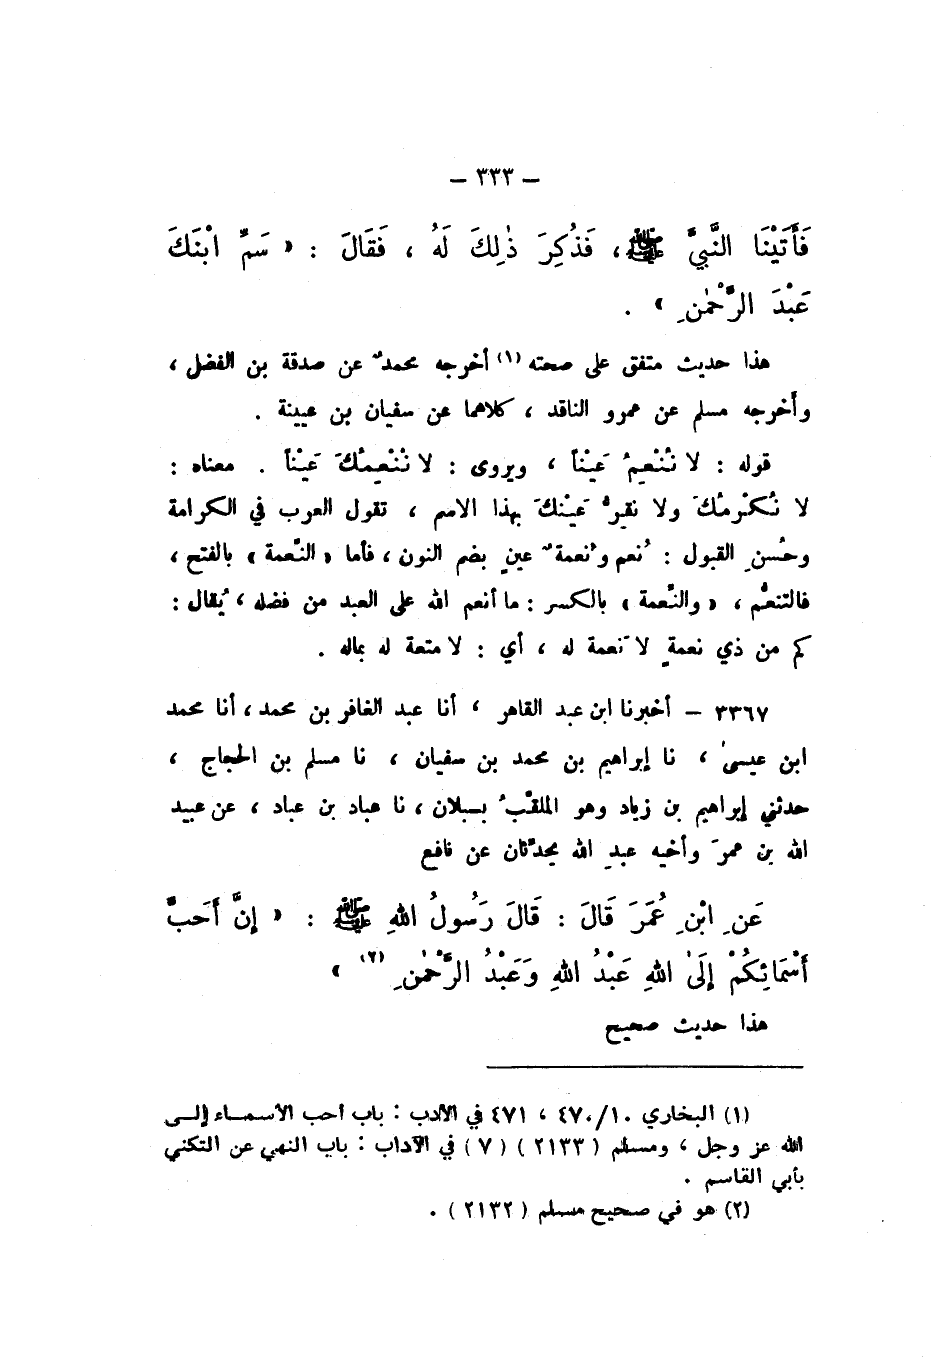 – ٣٣٣ –
فَأَتَيْنَا النَّبِيَّ ﷺ، فَذُكِرَ ذٰلِكَ لَهُ ، فَقَالَ : « سَمِّ ابْنَكَ
عَبْدَ الرَّحْمٰنِ » .
هذا حديث متفق على صحته (١) أخرجه محمدٌ عن صدقة بن الفضل ،
وأخرجه مسلم عن عمرو الناقد ، كلاهما عن سفيان بن عيينة .
قوله : لا نُنْعِمُ عَيْناً ، ويروى : لا نُنْعِمُكَ عَيْناً . معناه :
لا نُكْرِمُكَ ولا نقِرُّ عَيْنَكَ بهذا الاسم ، تقول العرب في الكرامة
وحُسنِ القبول : نُعم ونُعمةُ عينٍ بضم النون ، فأما « النَّعمة » بالفتح ،
فالتنعُّم ، « والنِّعمة » بالكسر : ما أنعم الله على العبد من فضله ، يُقال :
كم من ذي نعمةٍ لا نَعمة له ، أي : لا متعة له بماله .
٣٣٦٧ – أخبرنا ابن عبد القاهر ، أنا عبد الغافر بن محمد ، أنا محمد
ابن عيسىٰ ، نا إبراهيم بن محمد بن سفيان ، نا مسلم بن الحجاج ،
حدثني إبراهيم بن زياد وهو الملقّبُ بسبلان ، نا عباد بن عباد ، عن عبيد
الله بن عمرَ وأخيه عبدِ الله يحدِّثان عن نافع
عَنِ ابْنِ عُمَرَ قَالَ : قَالَ رَسُولُ اللهِ ﷺ : « إِنَّ أَحَبَّ
أَسْمَائِكُمْ إِلَىٰ اللهِ عَبْدُ اللهِ وَعَبْدُ الرَّحْمٰنِ (٢) »
هذا حديث صحيح
(١) البخاري ٤٧٠/١٠ ، ٤٧١ في الأدب : باب أحب الأسماء إلى
الله عز وجل ، ومسلم ( ٢١٣٣ ) ( ٧ ) في الآداب : باب النهي عن التكني
بأبي القاسم .
(٢) هو في صحيح مسلم ( ٢١٣٢ ) .